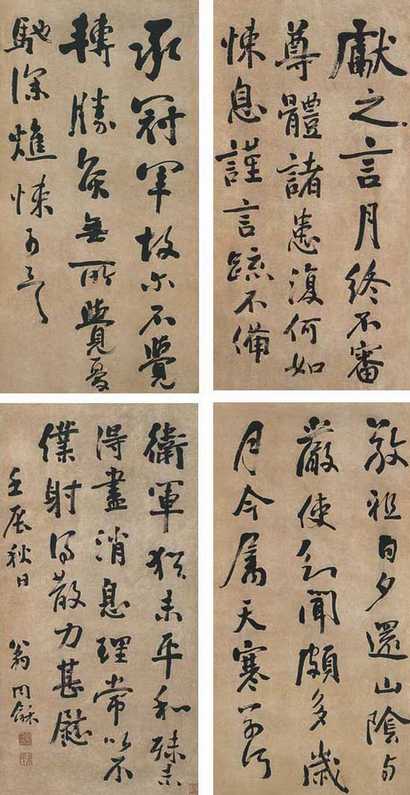 獻之言月終不審
尊體諸患復何如
悚息謹言疏不備
承冠軍故尔不覺
轉勝灸無所覺憂
馳深燋悚可言
敬祖日夕還山陰与
嚴使君聞頗多歲
月今屬天寒
衛軍猶未平和殊未
得盡消息理常以不
僕射得散力甚慰
壬辰秋日
翁同龢